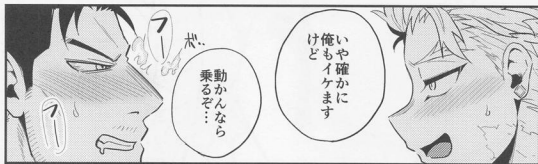 いや確かに
俺もイケます
けど
ボ..
動かんなら
乗るぞ…
フー
フー